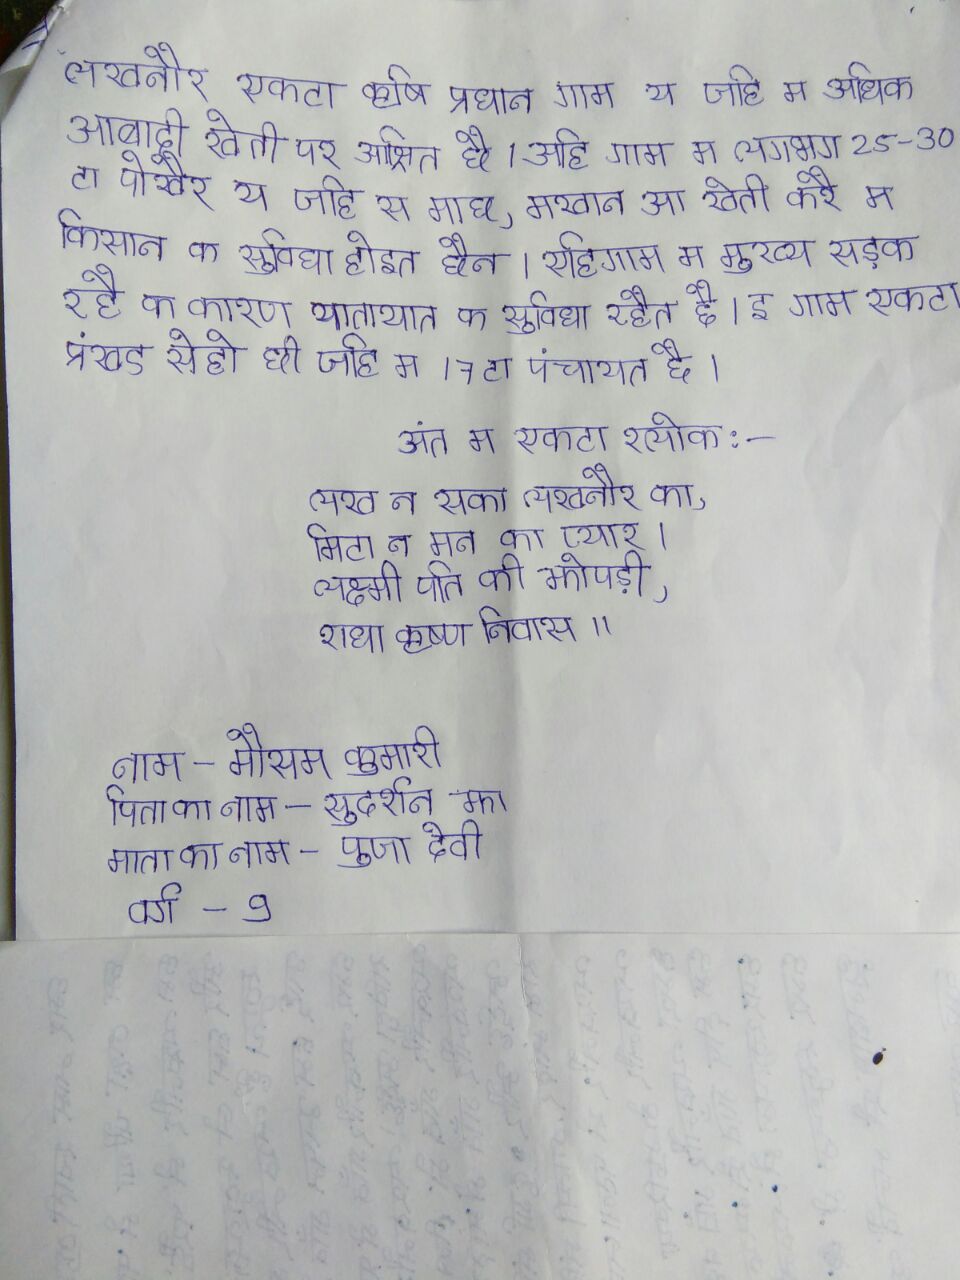 लखनौर एकटा कृषि प्रधान गाम य जहि म अधिक
आबादी खेती पर आश्रित छै । अहि गाम म लगभग 25-30
टा पोखैर य जहि स माछ, मखान आ खेती करै म
किसान क सुविधा होइत छैन । एहि गाम म मुख्य सड़क
रहै क कारण यातायात क सुविधा रहैत छै । इ गाम एकटा
प्रंखड सेहो छी जहि म 17 टा पंचायत छै ।
अंत म एकटा श्लोक :-
लख न सका लखनौर का,
मिटा न मन का प्यार ।
लक्ष्मी पति की झोपड़ी,
राधा कृष्ण निवास ॥
नाम - मौसम कुमारी
पिता का नाम - सुदर्शन झा
माता का नाम - पुजा देवी
वर्ग - 9